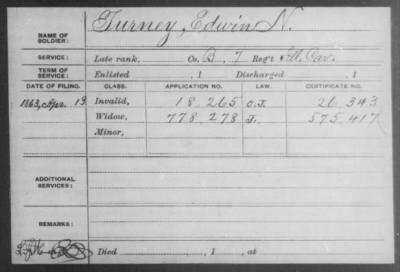 Turney, Edwin N.
NAME OF SOLDIER:
SERVICE: Late rank, Co. B, 7 Reg't Ill. Cav.
TERM OF SERVICE: Enlisted , 1 Discharged , 1
DATE OF FILING. CLASS. APPLICATION NO. LAW. CERTIFICATE NO.
1863, Apr. 13 Invalid, 18.265 26.343
Widow, 778.278 575.417
Minor,
ADDITIONAL SERVICES:
REMARKS:
Died , 1 , at